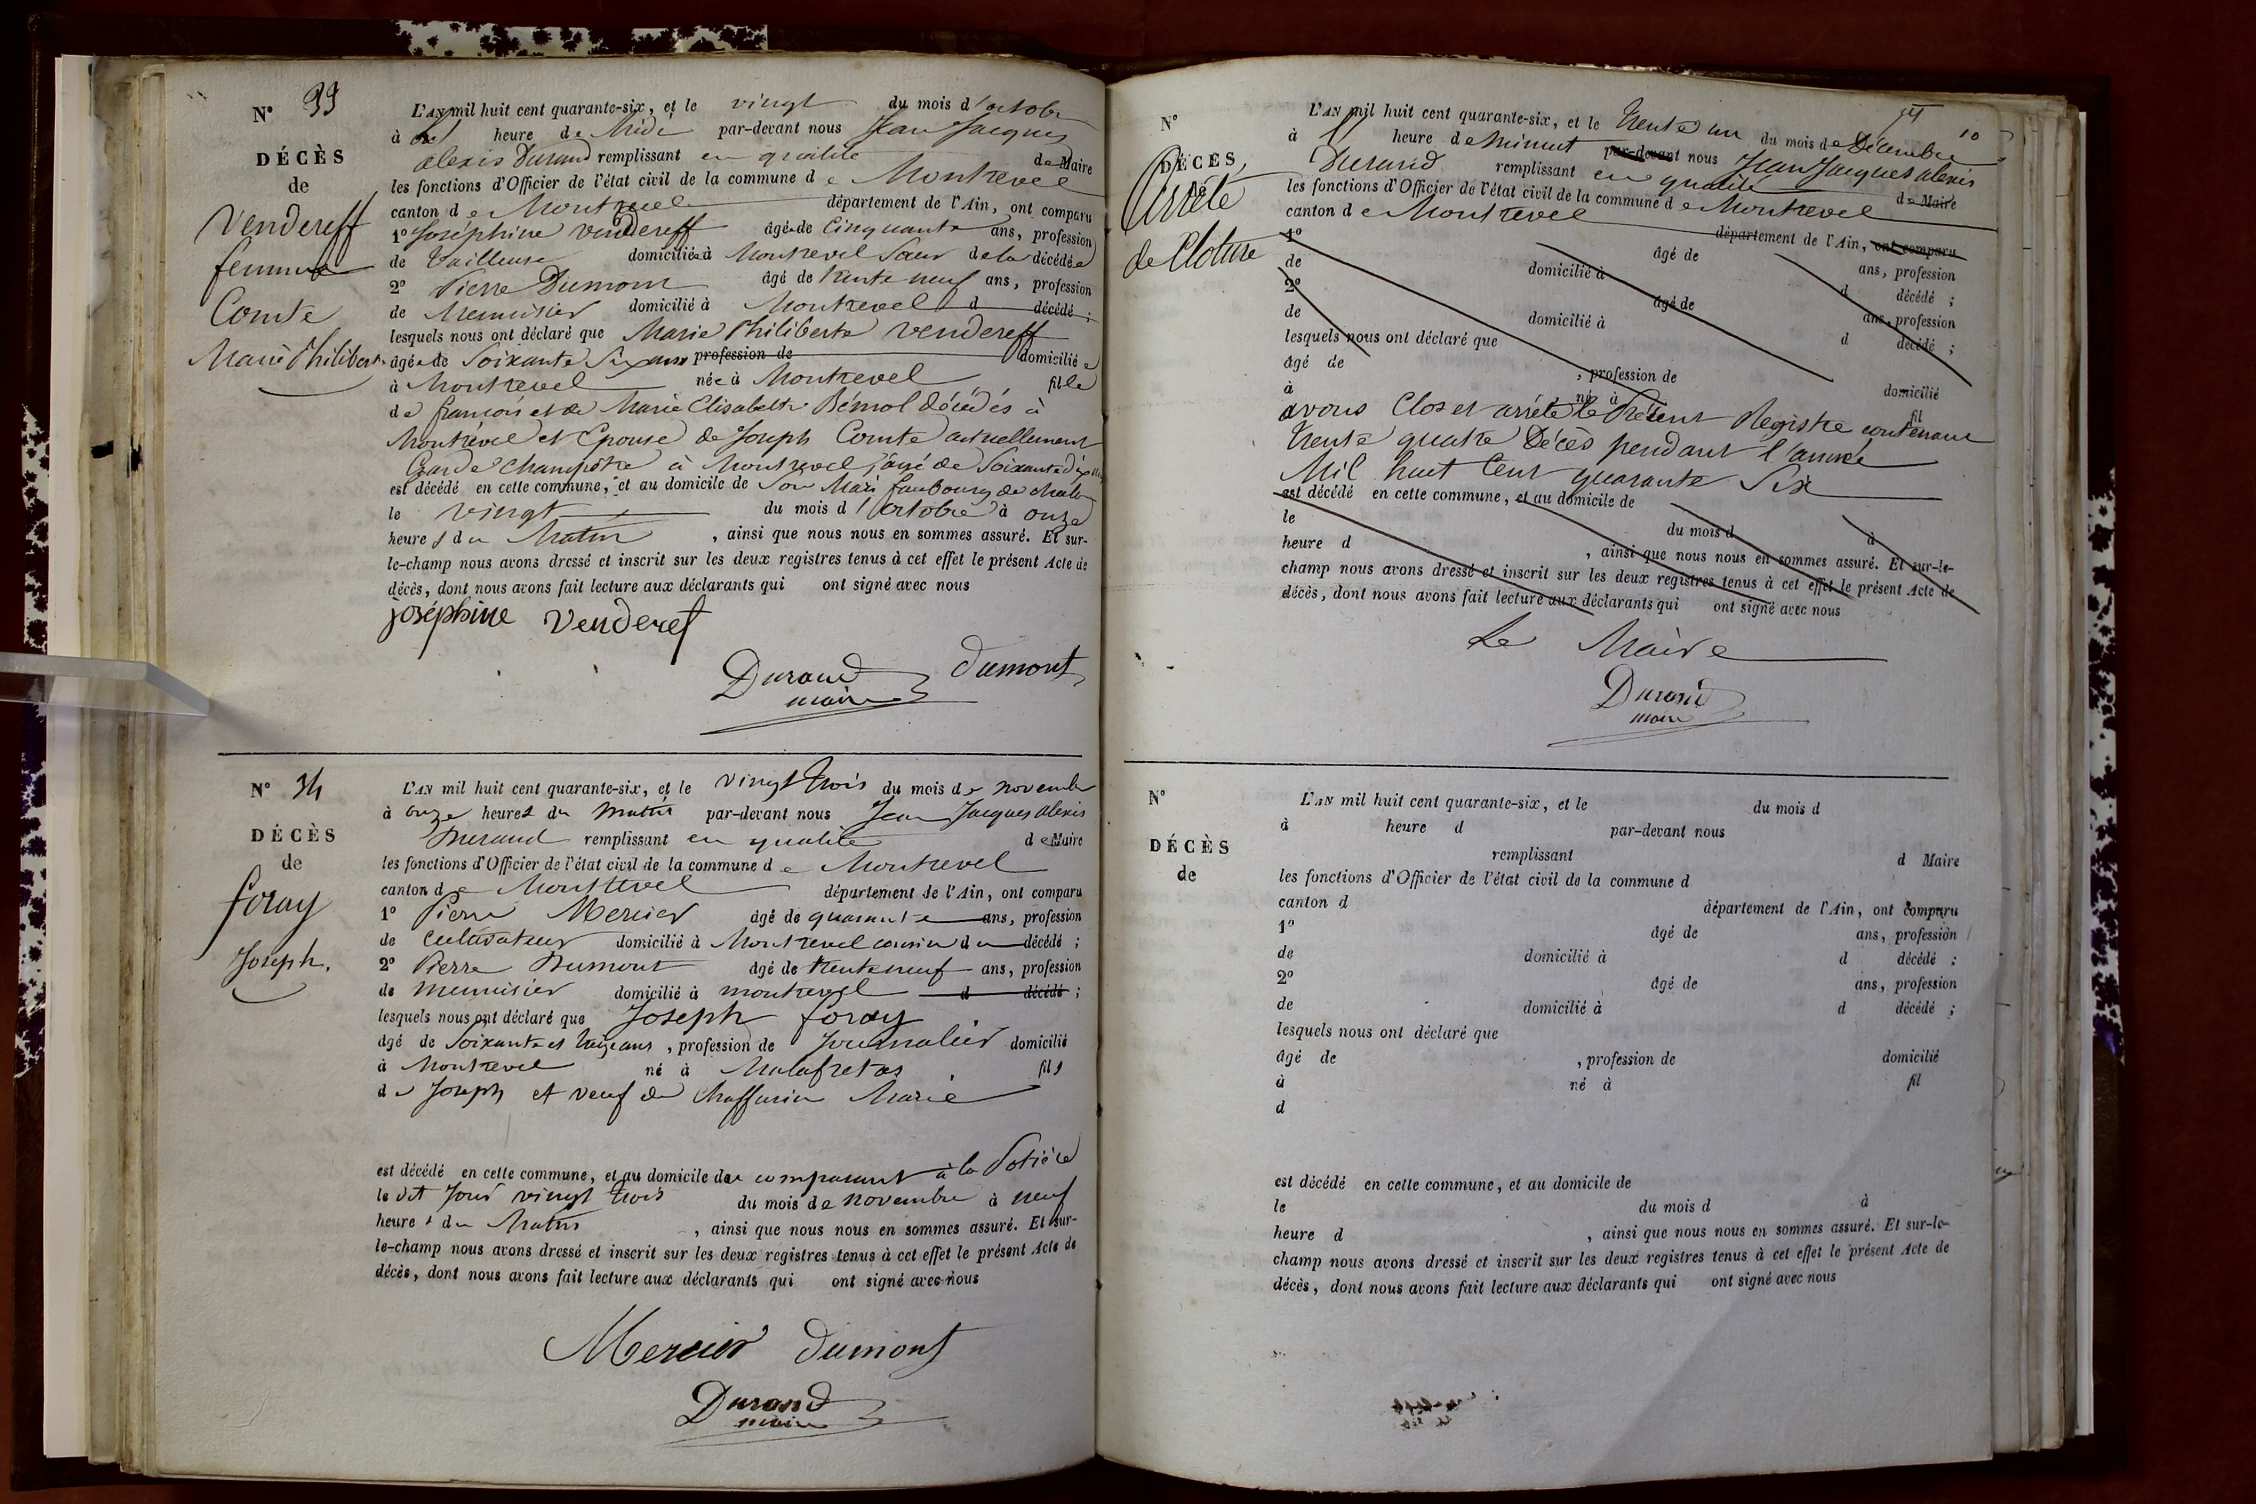 N° 33
DÉCÈS
de
Vendereff
femme
Comte
Marie Philiberte
L'AN mil huit cent quarante-six, et le vingt du mois d'octobre
à heure de Midi par-devant nous Jean Jacques
alexis Durand remplissant en qualité de Maire
les fonctions d'Officier de l'état civil de la commune de Montrevel
canton de Montrevel département de l'Ain, ont comparu
1° Joséphine Vendereff âgée de Cinquante ans, profession
de Tailleuse domiciliée à Montrevel Sœur de la décédée
2° Pierre Dumont âgé de trente neuf ans, profession
de Menuisier domicilié à Montrevel d décédé ;
lesquels nous ont déclaré que Marie Philiberte Vendereff
âgée de Soixante Six ans profession de domiciliée
à Montrevel née à Montrevel fille
de françois et de Marie Elisabeth décédés à
Montrevel et Epouse de Joseph Comte actuellement
Garde Champêtre à Montrevel, âgé de Soixante
est décédé en cette commune, et au domicile de Son Mari faubourg de
le vingt du mois d'octobre à onze
heures du Matin , ainsi que nous nous en sommes assuré. Et sur-
le-champ nous avons dressé et inscrit sur les deux registres tenus à cet effet le présent Acte de
décès, dont nous avons fait lecture aux déclarants qui ont signé avec nous
joséphine Venderef
Durand dumont
maire
N° 34
DÉCÈS
de
foray
Joseph.
L'AN mil huit cent quarante-six, et le vingt trois du mois de novembre
à onze heures du matin par-devant nous Jean Jacques alexis
Durand remplissant en qualité de Maire
les fonctions d'Officier de l'état civil de la commune de Montrevel
canton de Montrevel département de l'Ain, ont comparu
1° Pierre Mercier âgé de quarante ans, profession
de cultivateur domicilié à Montrevel cousin du décédé ;
2° Pierre Dumont âgé de trente neuf ans, profession
de menuisier domicilié à montrevel d décédé ;
lesquels nous ont déclaré que Joseph foray
âgé de Soixante et treize ans , profession de Journalier domicilié
à Montrevel né à Malafretas fils
de Joseph et veuf de Chaffurin Marie
est décédé en cette commune, et au domicile du comparant à la
le dit Jour vingt trois du mois de novembre à neuf
heures du Matin , ainsi que nous nous en sommes assuré. Et sur-
le-champ nous avons dressé et inscrit sur les deux registres tenus à cet effet le présent Acte de
décès, dont nous avons fait lecture aux déclarants qui ont signé avec nous
Mercier dumont
Durand
maire
10
N°
DÉCÈS
de
Arrêté
de Clôture
L'AN mil huit cent quarante-six, et le trente un du mois de Décembre
à heure de minuit par-devant nous Jean Jacques alexis
Durand remplissant en qualité de Maire
les fonctions d'Officier de l'état civil de la commune de Montrevel
canton de Montrevel département de l'Ain, ont comparu
1° âgé de ans, profession
de domicilié à d décédé ;
2° âgé de ans, profession
de domicilié à d décédé ;
lesquels nous ont déclaré que
âgé de , profession de domicilié
à né à fil
avons Clos et arrêté le Présent Registre contenant
trente quatre Décès pendant l'année
Mil huit Cent quarante Six
est décédé en cette commune, et au domicile de
le du mois d à
heure d , ainsi que nous nous en sommes assuré. Et sur-le-
champ nous avons dressé et inscrit sur les deux registres tenus à cet effet le présent Acte de
décès, dont nous avons fait lecture aux déclarants qui ont signé avec nous
Le Maire
Durand
maire
N°
DÉCÈS
de
L'AN mil huit cent quarante-six, et le du mois d
à heure d par-devant nous
remplissant d Maire
les fonctions d'Officier de l'état civil de la commune d
canton d département de l'Ain, ont comparu
1° âgé de ans, profession
de domicilié à d décédé ;
2° âgé de ans, profession
de domicilié à d décédé ;
lesquels nous ont déclaré que
âgé de , profession de domicilié
à né à fil
d
est décédé en cette commune, et au domicile de
le du mois d à
heure d , ainsi que nous nous en sommes assuré. Et sur-le-
champ nous avons dressé et inscrit sur les deux registres tenus à cet effet le présent Acte de
décès, dont nous avons fait lecture aux déclarants qui ont signé avec nous